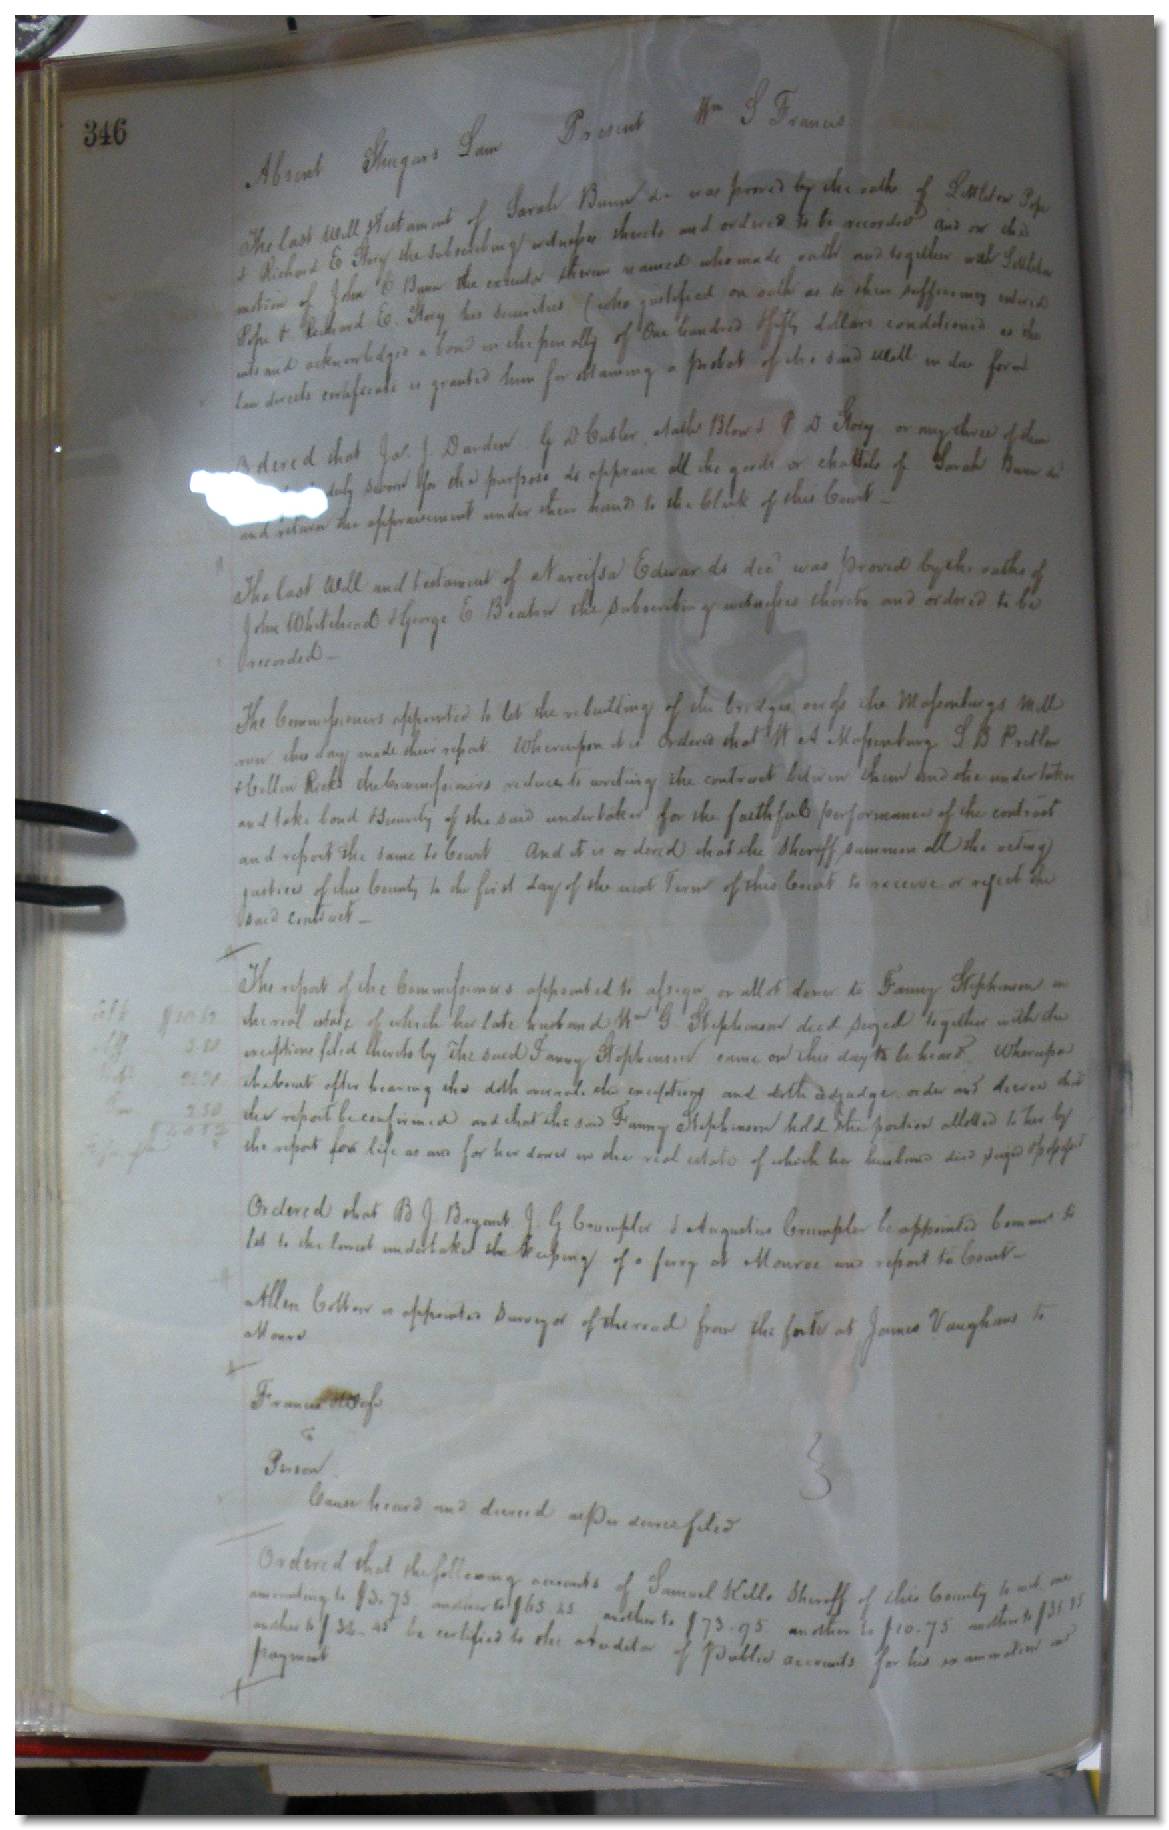 346
Absent Shugars Lain Present Wm S Francis
The last Will & Testament of Sarah Bunn dec was proved by the oaths of Littleton Pope
& Richard E Story the subscribing witnesses thereto and ordered to be recorded and on the
motion of John E Bunn the executor therein named who made oath and together with Littleton
Pope & Richard E. Story his securities (who justified on oath as to their sufficiency entered
into and acknowledged a bond in the penalty of One hundred & fifty dollars conditioned as the
law directs certificate is granted him for obtaining a probat of the said Will in due form
Ordered that Ja. J. Darden G D Cutler, Nath Blow & P D Story or any three of them
duly sworn for the purpose do appraise all the goods or chattels of Sarah Bunn dec
and return the appraisement under their hand to the Clerk of this Court —
The last Will and testament of Narcissa Edwards decd was proved by the oaths of
John Whitehead & George E Beaton the subscribing witnesses thereto and ordered to be
recorded —
The Commissioners appointed to let the rebuilding of the bridge across the Massenburgs Mill
run this day made their report. Whereupon it is Ordered that W A Massenburg L B Pretlow
& Collin Ricks the Commissioners reduce to writing the contract between them and the undertaker
and take bond & security of the said undertaker for the faithful performance of the contract
and report the same to Court And it is ordered that the Sheriff summon all the acting
justices of this County to the first day of the next Term of this Court to receive or reject the
said contract —
The report of the Commissioners appointed to assign or allot dower to Fanny Stephenson in
the real estate of which her late husband Wm G Stephenson died seized together with the
exceptions filed thereto by the said Fanny Stephenson came on this day to be heard Whereupon
the Court after hearing the doth overrule the exceptions and doth adjudge order and decree that
the report be confirmed and that the said Fanny Stephenson hold the portion allotted to her by
the report for life as and for her dower in the real estate of which her husband died seized & possessed
2.50
Ordered that B J Bryant J. G Crumpler & Augustus Crumpler be appointed Commrs to
let to the lowest undertaker the keeping of a ferry at Monroe and report to Court —
Allen Cotton is appointed Surveyor of the road from the forks at James Vaughans to
Monroe
Francis & Wife
Person
Cause heard and decreed as per decree filed
Ordered that the following accounts of Samuel Kello Sheriff of this County to wit one
amounting to $3.75 another to $65.25 another to $73.75 another to $10.75 another to $31.25
another to $32.45 be certified to the Auditor of Public accounts for his examination and
payment